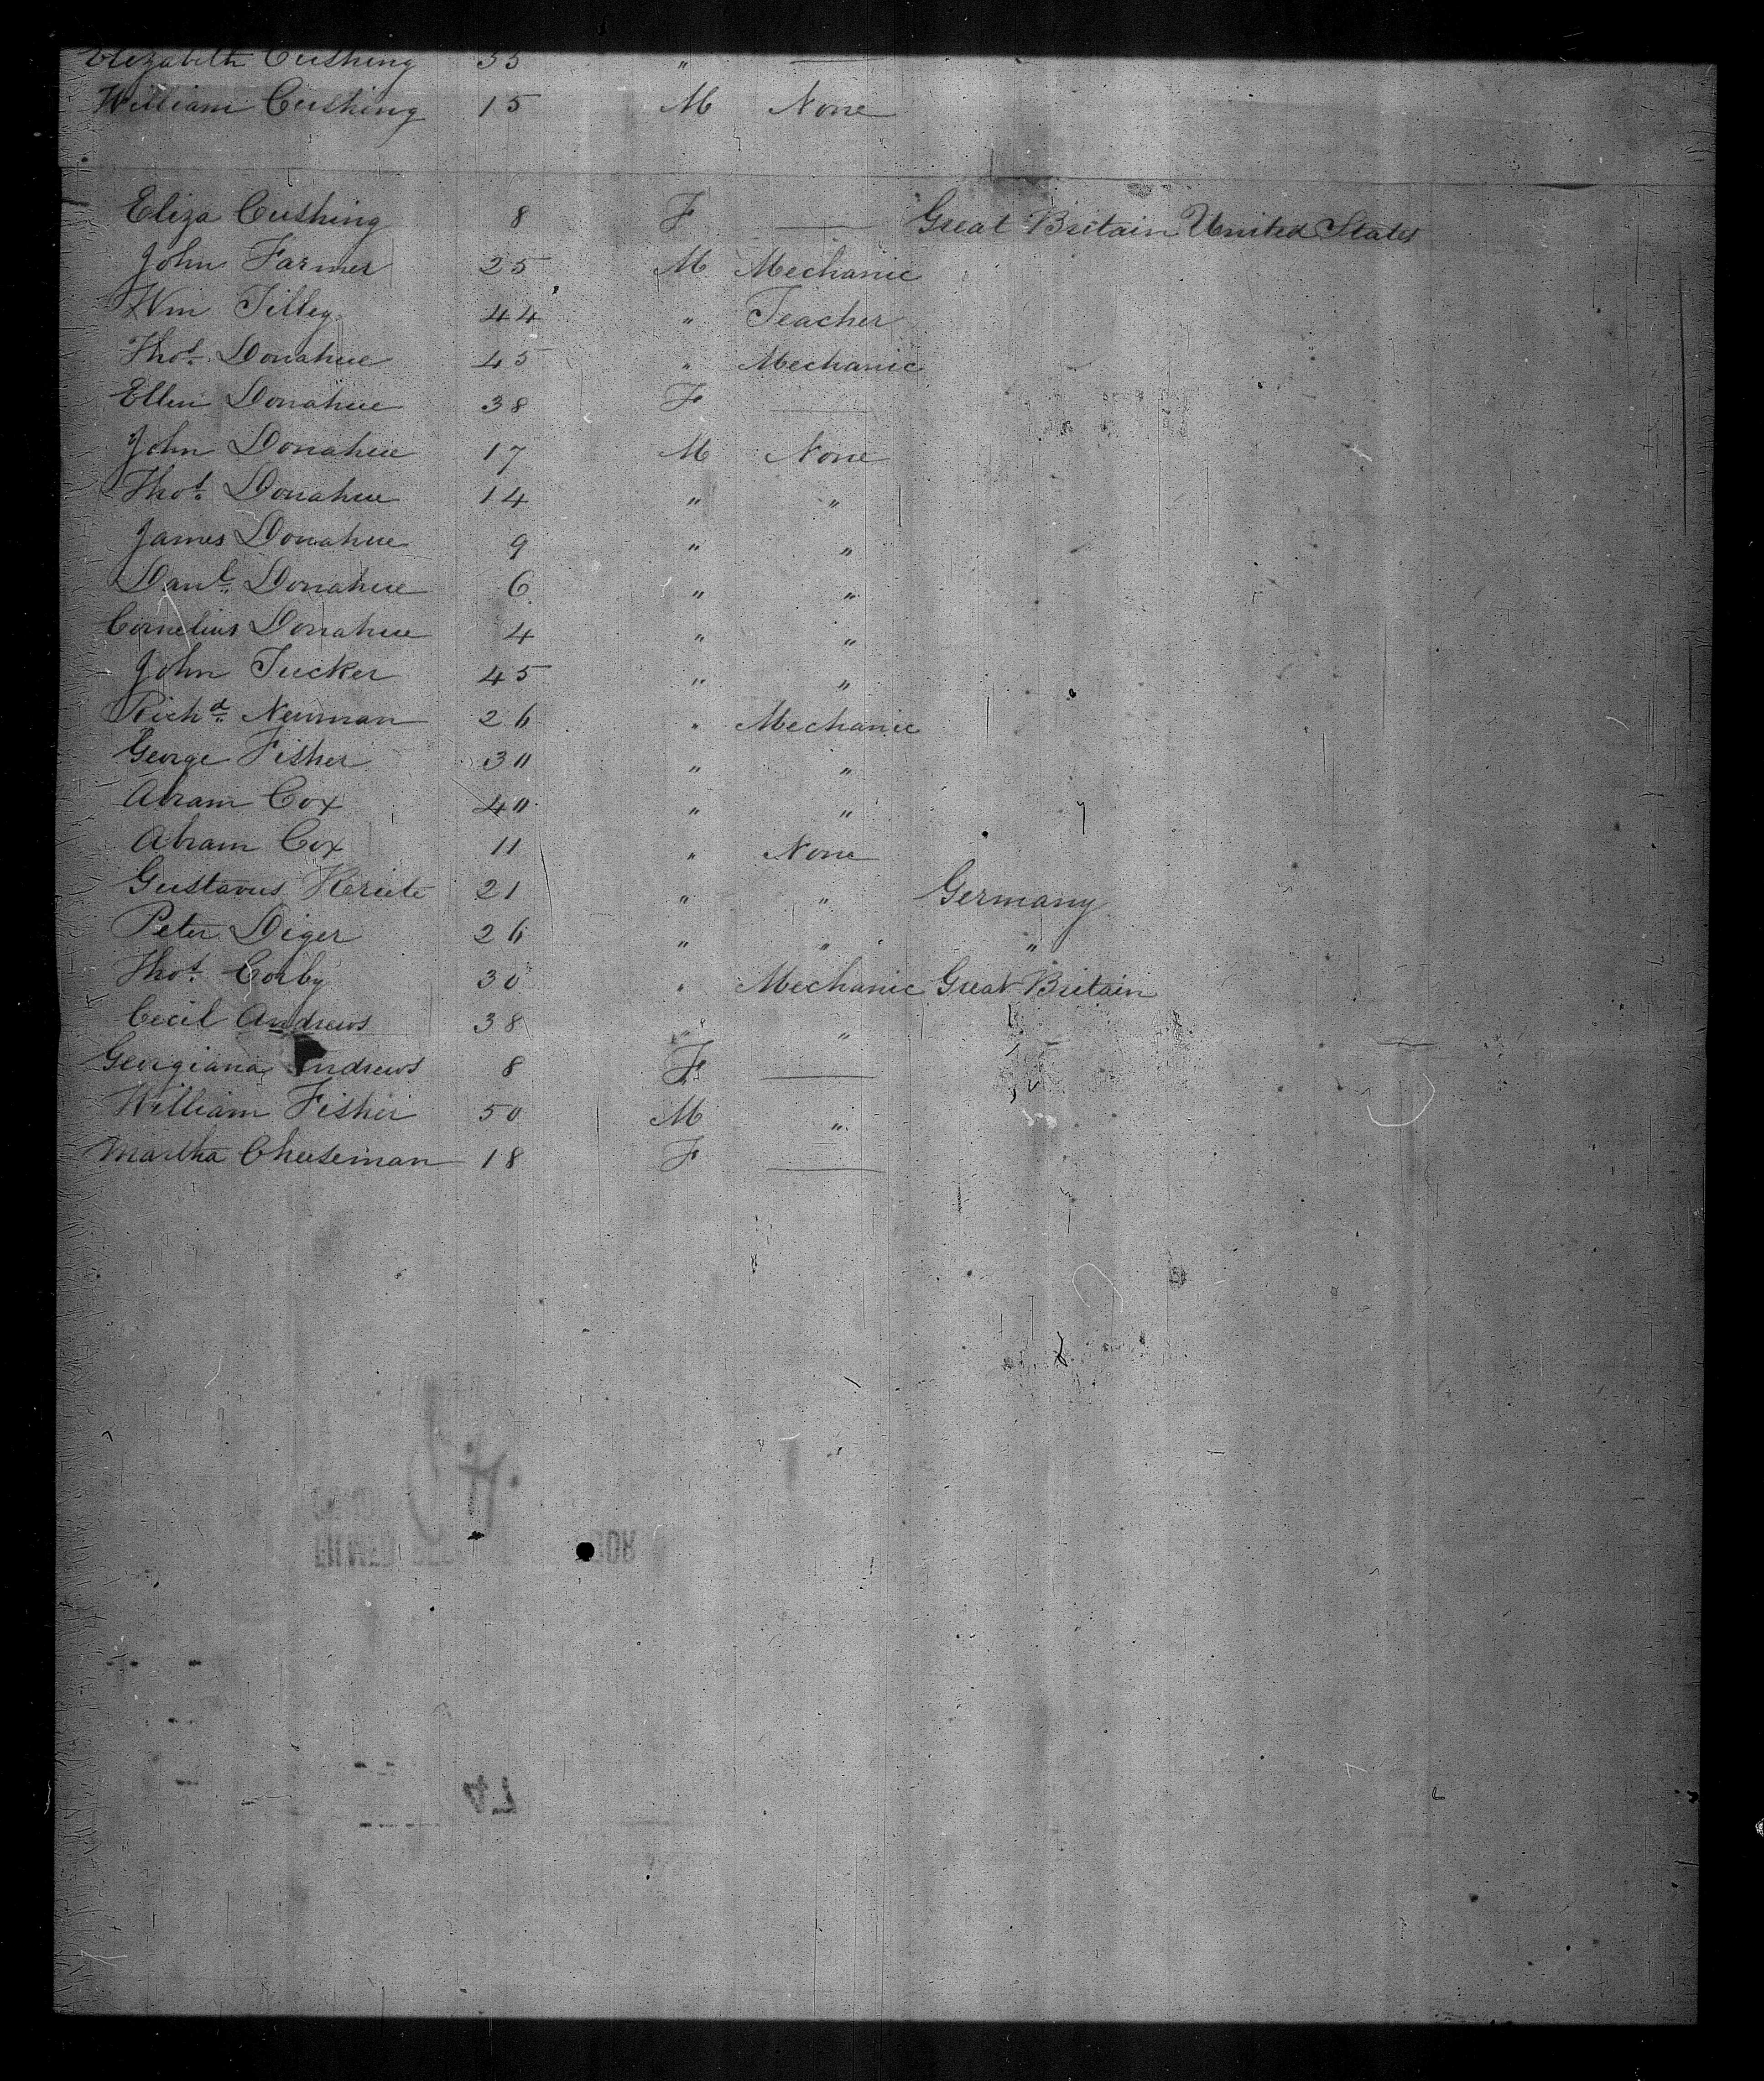 Elizabeth Cushing 35 " —
William Cushing 15 M None
Eliza Cushing 8 F — Great Britain United States
John Farmer 25 M Mechanic
Wm Tilley 44 " Teacher
Thos. Donahue 45 " Mechanic
Ellen Donahue 38 F —
John Donahue 17 M None
Thos. Donahue 14 " "
James Donahue 9 " "
Danl. Donahue 6 " "
Cornelius Donahue 4 " "
John Tucker 45 " "
Richd. Newman 26 " Mechanic
George Fisher 30 " "
Abram Cox 40 " "
Abram Cox 11 " None
Gustavus 21 " " Germany
Peter Diger 26 " " "
Thos. Corby 30 " Mechanic Great Britain
Cecil Andrews 38 " "
Georgiana Andrews 8 F —
William Fisher 50 M "
Martha Cheeseman 18 F —
47